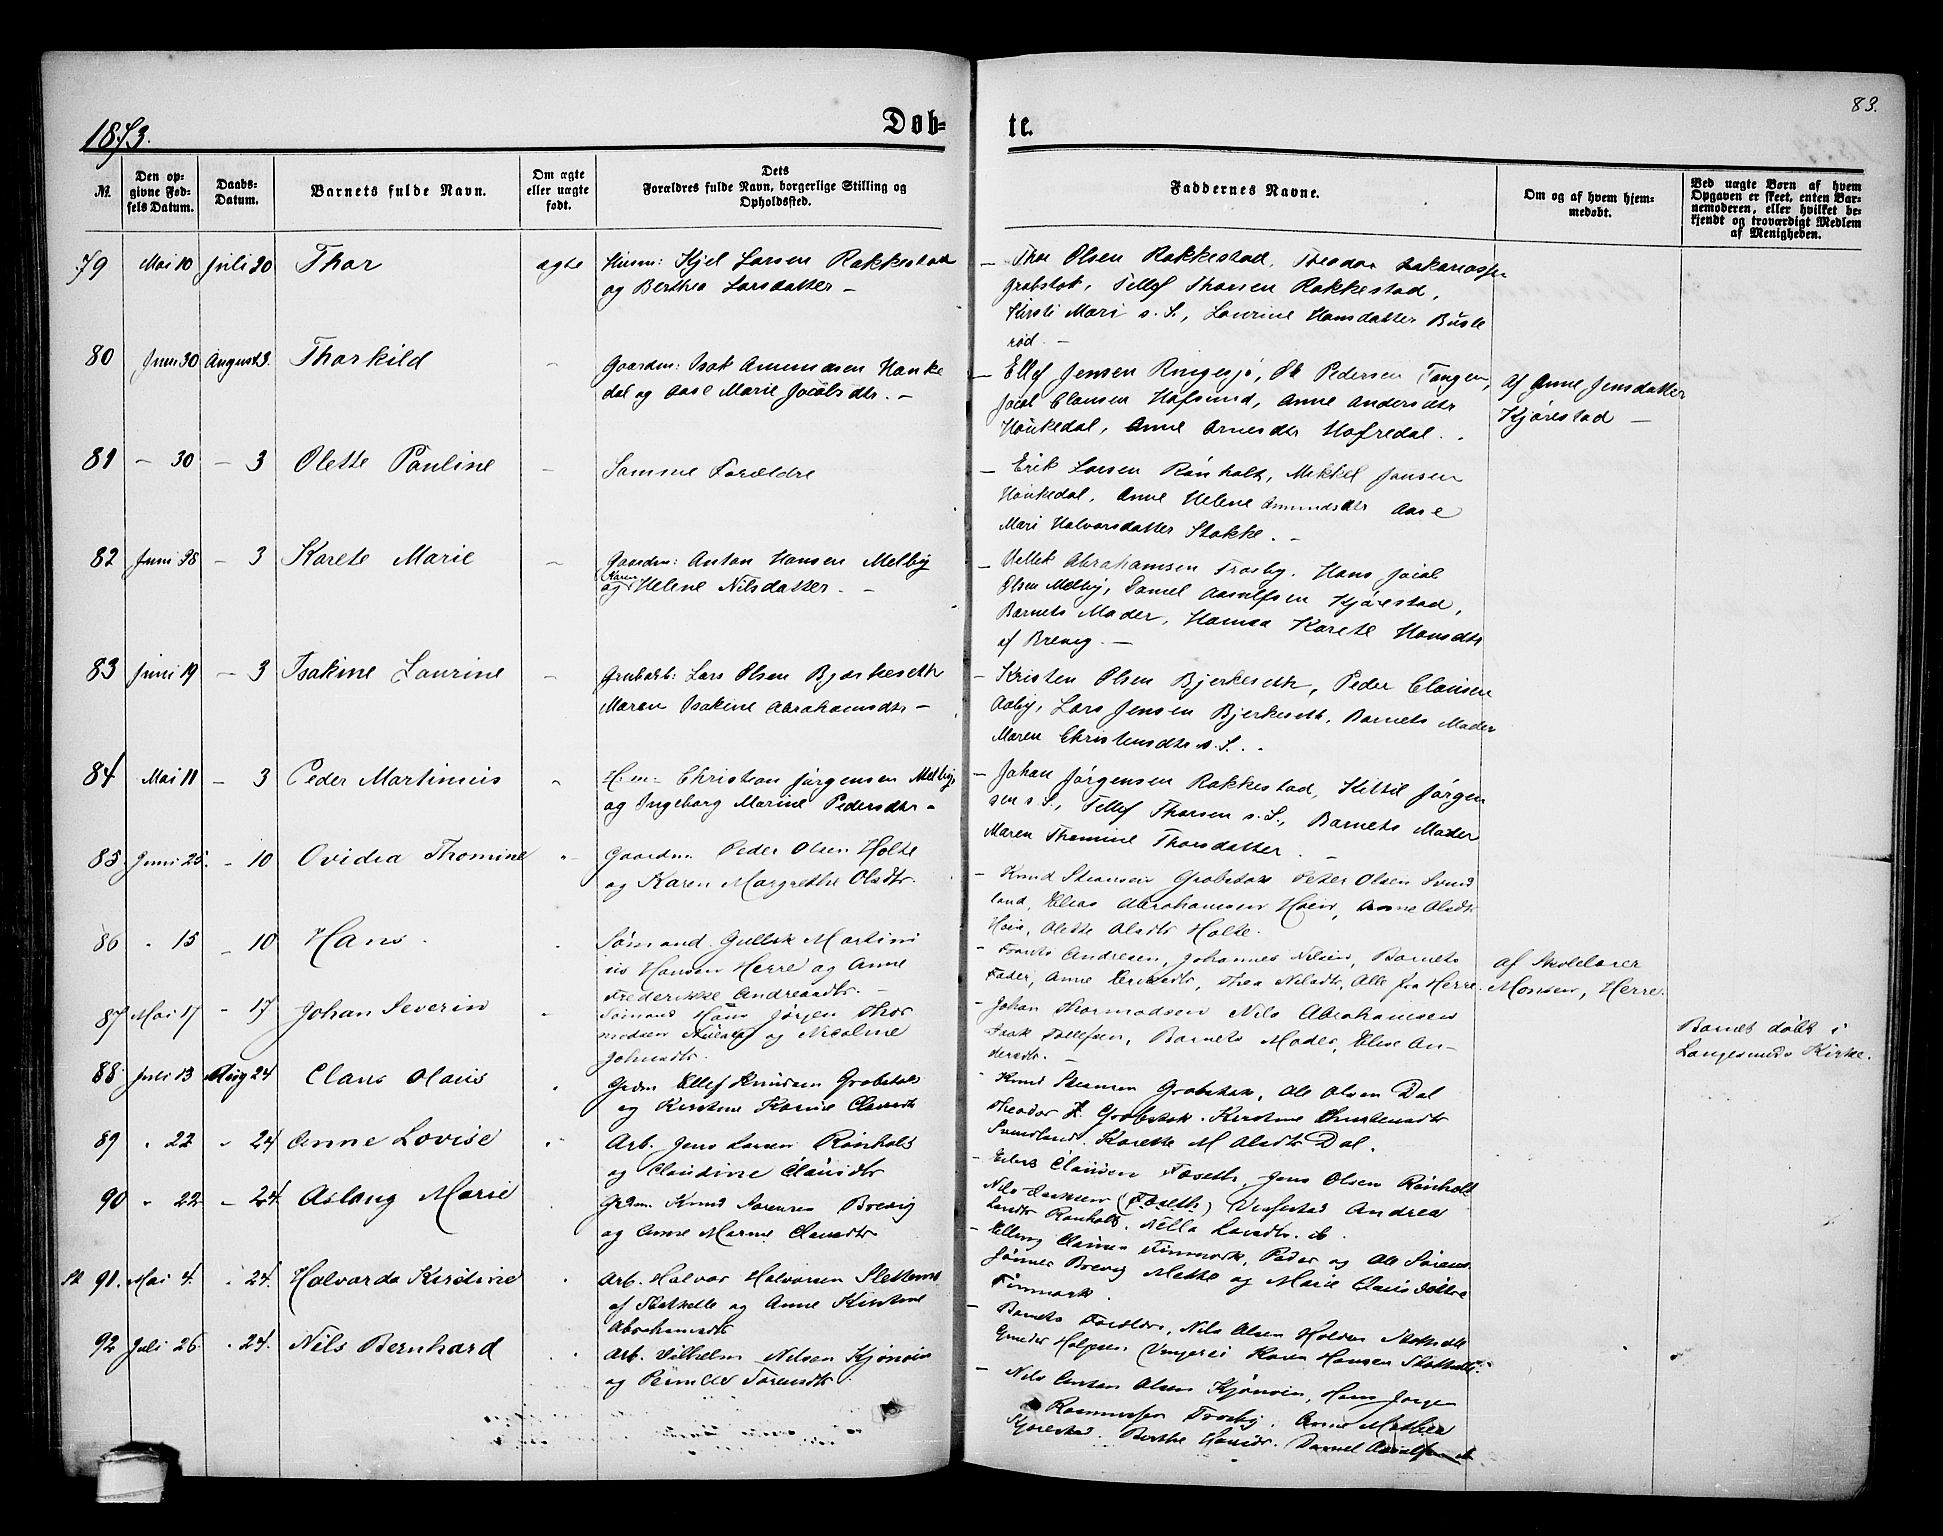 83.
1873.
Döb=
te.
No.
Den op-
givne Fød-
sels Datum.
Daabs-
Datum.
Barnets fulde Navn.
Om ægte
eller uægte
født.
Dets
Forældres fulde Navn, borgerlige Stilling og
Opholdssted.
Faddernes Navne.
Om og af hvem hjem-
medøbt.
Ved uægte Born af hvem
Opgaven er skeet, enten Bar-
nemoderen, eller hvilket be-
kjendt og troværdigt Medlem
af Menigheden.
79 Mai 10 Juli 20 Thor ægte Husm: Kjel Larsen Rakkestad
og Berthea Larsdatter —
— Thor Olsen Rakkestad, Theodor
Grobstok, Tellef Thorsen Rakkestad,
Kirsti Mari s. S., Laurine Hansdatter Busle
rød. —
80 Juni 30 August 3. Thorkild Gaardm: Isak Hauke
dal og Aase Marie Jacobsdtr. —
— Ellef Jensen Ringesjø, Ole Pedersen Tangen,
Jacob Clausen Hafsund, Anne Andersdtr
Haukedal, Anne Arnesdtr Hafredal.
Af Anne Jensdatter
Kjørestad —
81 — 30 — 3 Olette Pauline — Samme Forældre
— Erik Larsen Rønholt, Mikkel Jansen
Haukedal, Anne Helene Amundsdtr Aase
Mari Halvorsdatter Stokke. —
82 Juni 28 — 3 Karete Marie — Gaardm: Anton Hansen Melby
og Karen Helene Nilsdatter. —
— Abrahamsen Trosby. Hans Jacob
Olsen Melby, Daniel Kjørestad,
Barnets Moder, Karete Hansdtr
af Brevig. —
83 Juni 19 — 3 Isakine Laurine — Grubarb: Lars Olsen Bjerkeseth
Maren Isakine Abrahamsdtr —
— Kristen Olsen Bjerkeseth, Peder Clausen
Aaby, Lars Jensen Bjerkeseth. Barnets Moder
Maren Christensdtr s. S.
84 Mai 11 — 3 Peder Martinius Christian Jørgensen Melby
og Ingeborg Marine Pedersdtr —
— Johan Jørgensen Rakkestad, Kittil Jørgen
sen s. S., Tellef Thorsen s. S., Barnets Moder
Maren Thomine Thorsdatter. —
85. Juni 25. - 10 Ovidia Thomine Gaardm Peder Olsen Holte
og Karen Margrethe Olsdtr.
— Knud Grobstok Peter Olsen Svind
land, Elias Abrahamsen Høen, Anne Olsdtr
Høin, Olette Olsdtr Holte.
86 " 15 - 10 Hans. Sømand. Gullik Martini
us Hansen Herre og Anne
Frederikke Andreasdtr. —
— Andresen, Johannes Nilsen, Barnets
Fader, Anne Thea Nilsdtr, Alle fra Herre.
af Skolelærer
Monsen, Herre.
87 Mai 17 - 17 Johan Severin Sømand Hans Jørgen Thor
modsen og Nicoline
Johnsdtr.
— Johan Thormodsen Nils Abrahamsen
Isak Tollefsen, Barnets Moder, Elise An-
dersdtr. —
Barnet døbt i
Langesunds Kirke.
88. Juli 13 Aug 24 Claus Olaus Grdm Ellef Knudsen Grobstok
og Kirstine Karine Clausdtr
- Knud Grobstok, Ole Olsen Dal
Theodor Z. Grobstok. Kirstine Christensdtr
Svindland. Karette M Olsdtr Dal.
89 " 22 " 24 Anne Lovise Arb. Jens Larsen Rønholt
og Claudine Clausdtr
- Clausen Foseth, Jens Olsen Rønholt
Nils (Foseth) Andrea
Larsdtr Rønholt. Larsdtr.
90 " 22 - 24. Aslaug Marie Grdm. Knud Sørensen Brevig
og Anne Marine Clausdtr
- Elling Clausen Finmark, Peder og Ole Sørens
Sønner Brevig Mette og Marie Claus Døttre
Finmark.
91. Mai 4. " 24. Halvarda Kirstine Arb. Halvor Halvorsen Slettene
af Stathelle og Anne Kirstine
Abrahamsdtr
- Barnets Forældre, Nils Olsen
Karen Hansen Stathelle.
92 Juli 26. " 24. Nils Bernhard Arb. Vilhelm Nilsen Kjønøin
og Pernille Sørensdtr.
— Nils Anton Olsen Kjønøin, Hans Jørgen
Rasmussen Trosby. Anne Mathea
Kjørestad. Berthe Hansdtr. Daniel